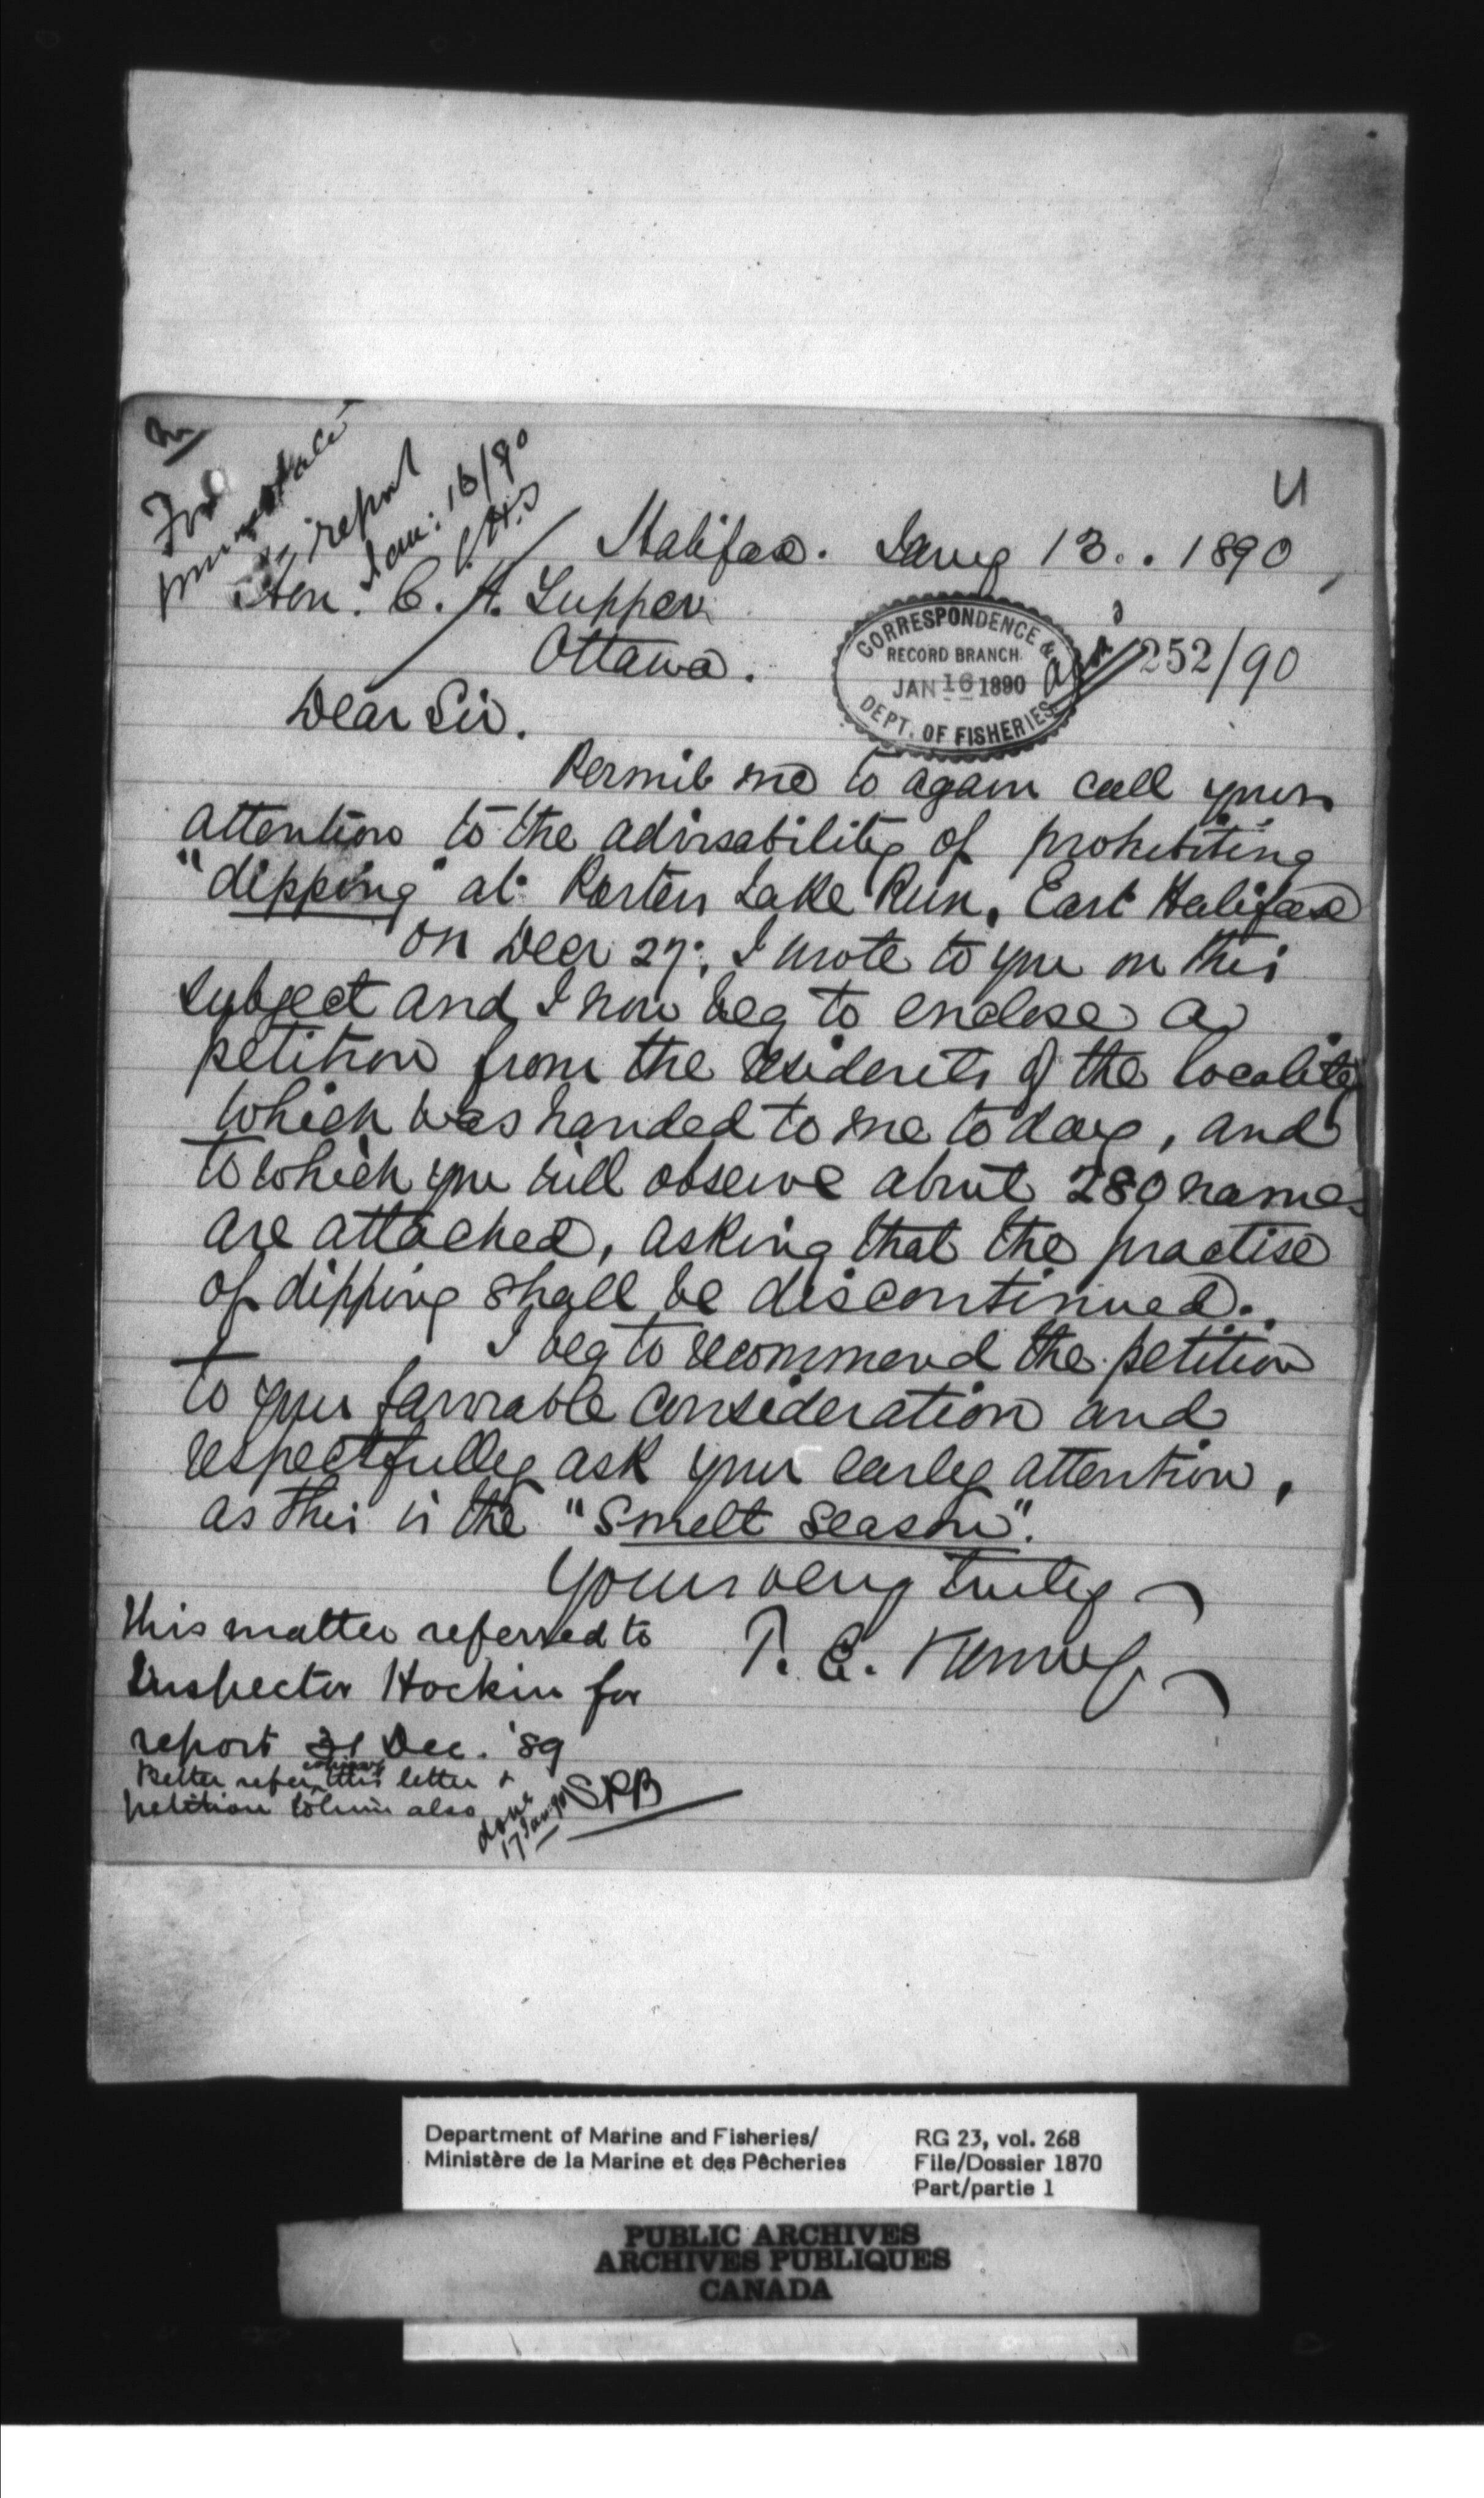 For
immediate
report
Jan: 16/90
C.H.T
U
Halifax. Jany 13.. 1890,
Hon. C. H. Tupper
Ottawa.
CORRESPONDENCE &
RECORD BRANCH.
JAN 16 1890
DEPT. OF FISHERIES
252/90
Dear Sir.
Permit me to again call your
attention to the advisability of prohibiting
"dipping" at Porters Lake Run, East Halifax
On Decr 27. I wrote to you on this
subject and I now beg to enclose a
petition from the residents of the locality
which was handed to me today, and
to which you will observe about 280 names
are attached, asking that the practise
of dipping shall be discontinued.
I beg to recommend the petition
to your favorable consideration and
respectfully ask your early attention,
as this is the "Smelt Season".
Yours very truly
T. E. Kenny
This matter referred to
Inspector Hockin for
report 31 Dec. '89
Better refer this letter &
petition to him also
SPB
done
17 Jan 90
Department of Marine and Fisheries/
Ministère de la Marine et des Pêcheries
RG 23, vol. 268
File/Dossier 1870
Part/partie 1
PUBLIC ARCHIVES
ARCHIVES PUBLIQUES
CANADA